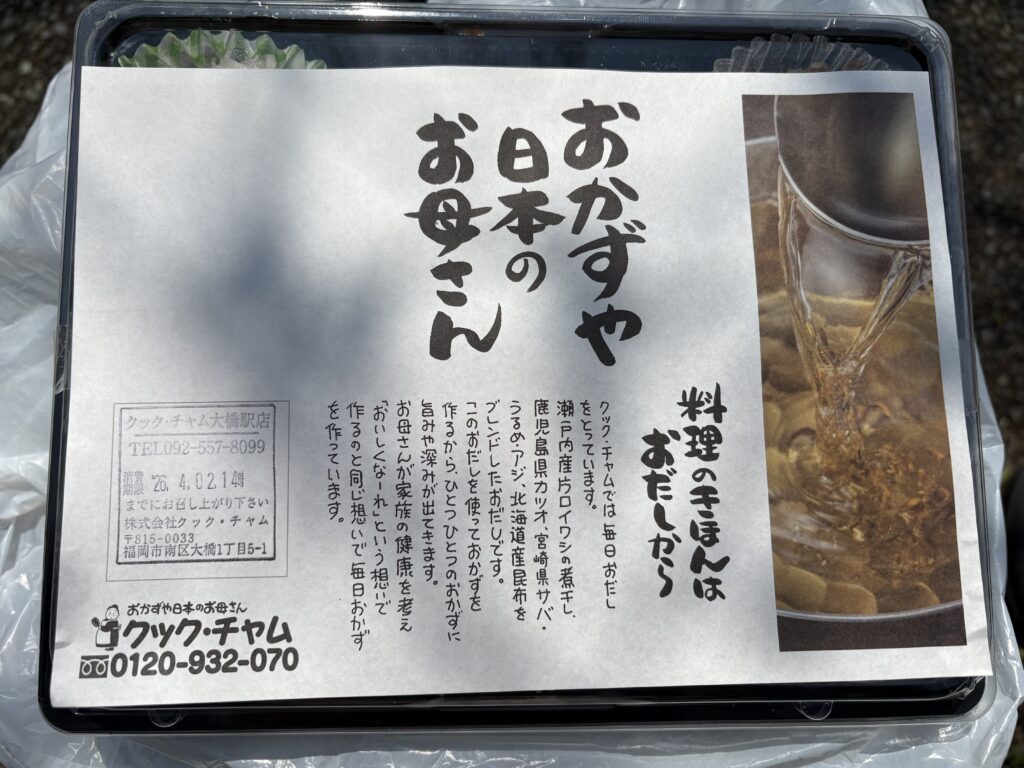 おかずや
日本の
お母さん
料理の手ほんは
おだしから
クック・チャムでは毎日おだし
をとっています。
瀬戸内産片口イワシの煮干し、
鹿児島県カツオ、宮崎県サバ・
うるめ・アジ、北海道産昆布を
ブレンドしたおだしです。
「このおだしを使っておかずを
作るから、ひとつひとつのおかずに
旨みや深みが出てきます。
お母さんが家族の健康を考え
「おいしくなーれ」という想いで
作るのと同じ想いで毎日おかず
を作っています。
クック・チャム大橋駅店
TEL092-557-8099
消費期限 '26.4.02.14時
までにお召し上がり下さい
株式会社クック・チャム
〒815-0033
福岡市南区大橋1丁目5-1
おかずや日本のお母さん
クック・チャム
0120-932-070